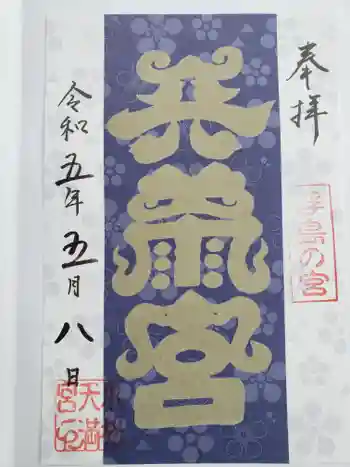 奉拝
浮島の宮
宮
令和五年五月八日
天満
宮印